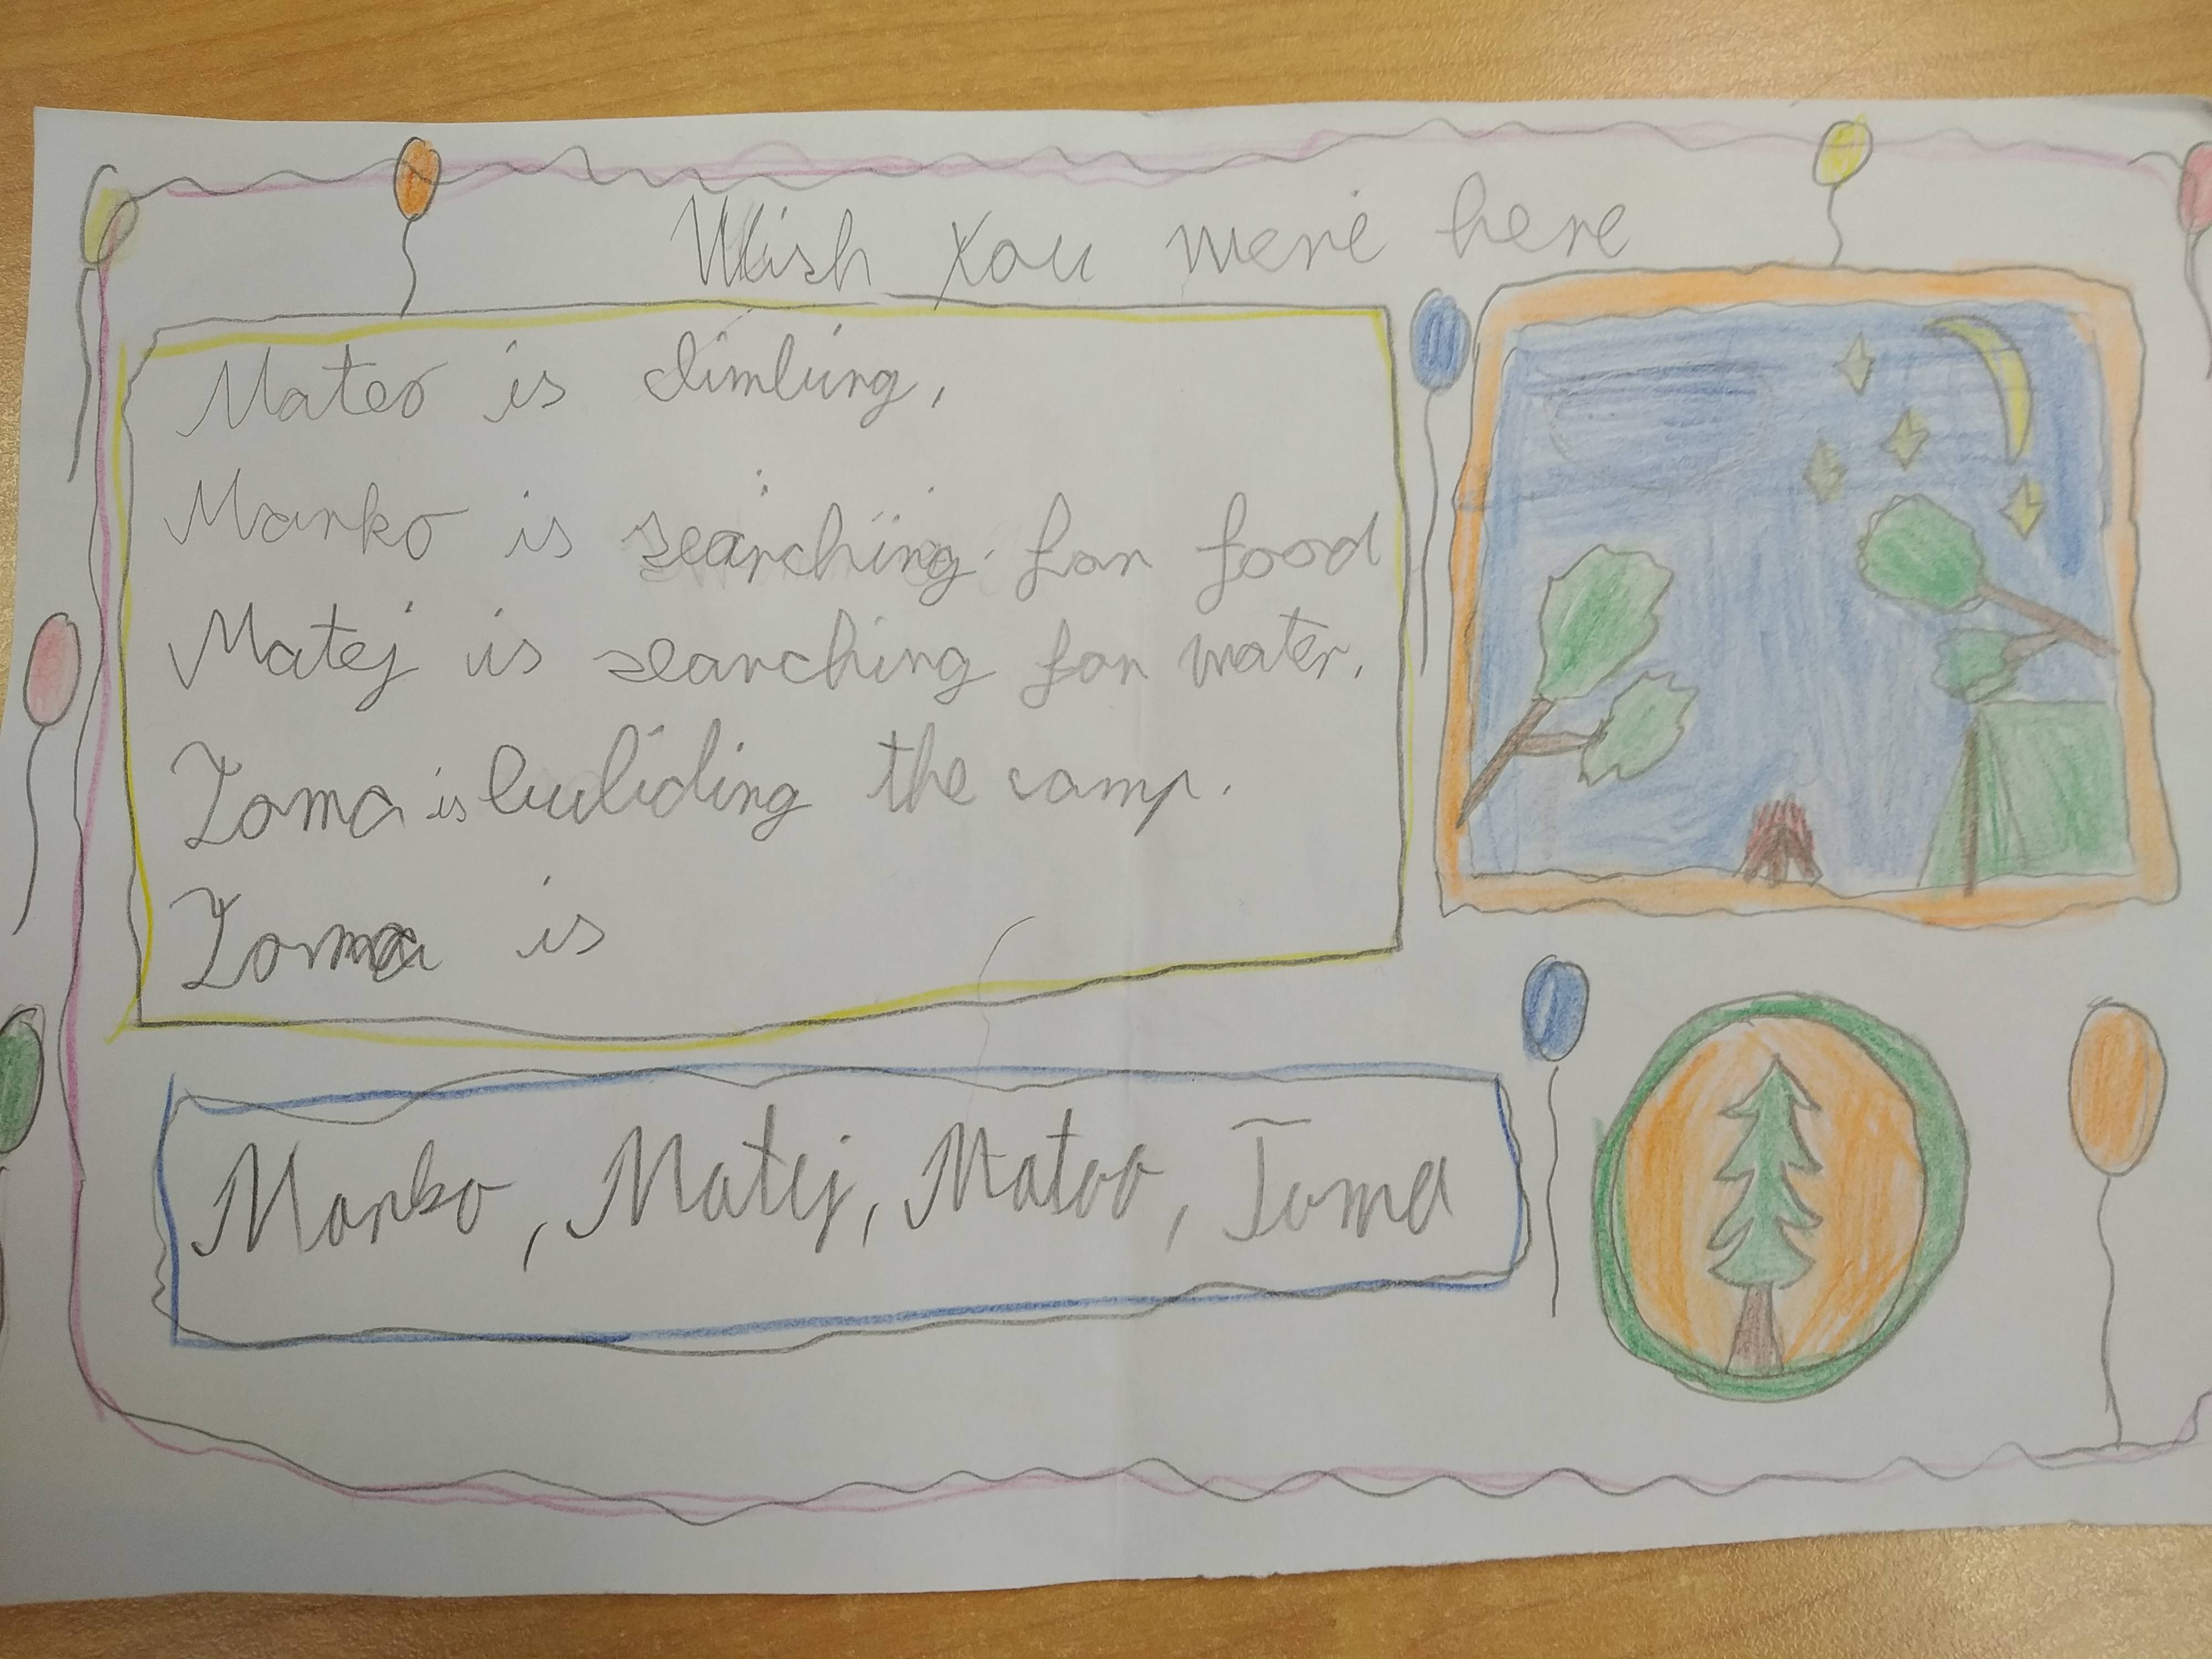 Wish you were here
Mateo is climbing,
Marko is searching for food
Matej is searching for water.
Toma is buliding the camp.
Toma is
Marko, Matej, Mateo, Toma